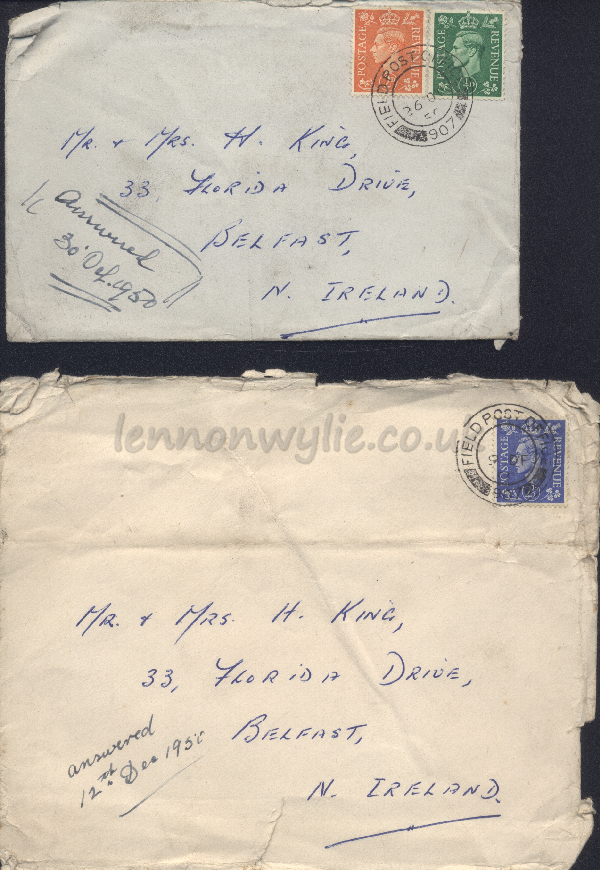 POSTAGE REVENUE POSTAGE REVENUE
FIELD POST
907
Mr. & Mrs. H. King,
33, Florida Drive,
Belfast,
N. Ireland.
answered
30 Dec. 1950
lennonwylie.co.uk
POSTAGE REVENUE
FIELD POST
Mr. & Mrs. H. King,
33, Florida Drive,
Belfast,
N. Ireland.
answered
12th Dec 1950